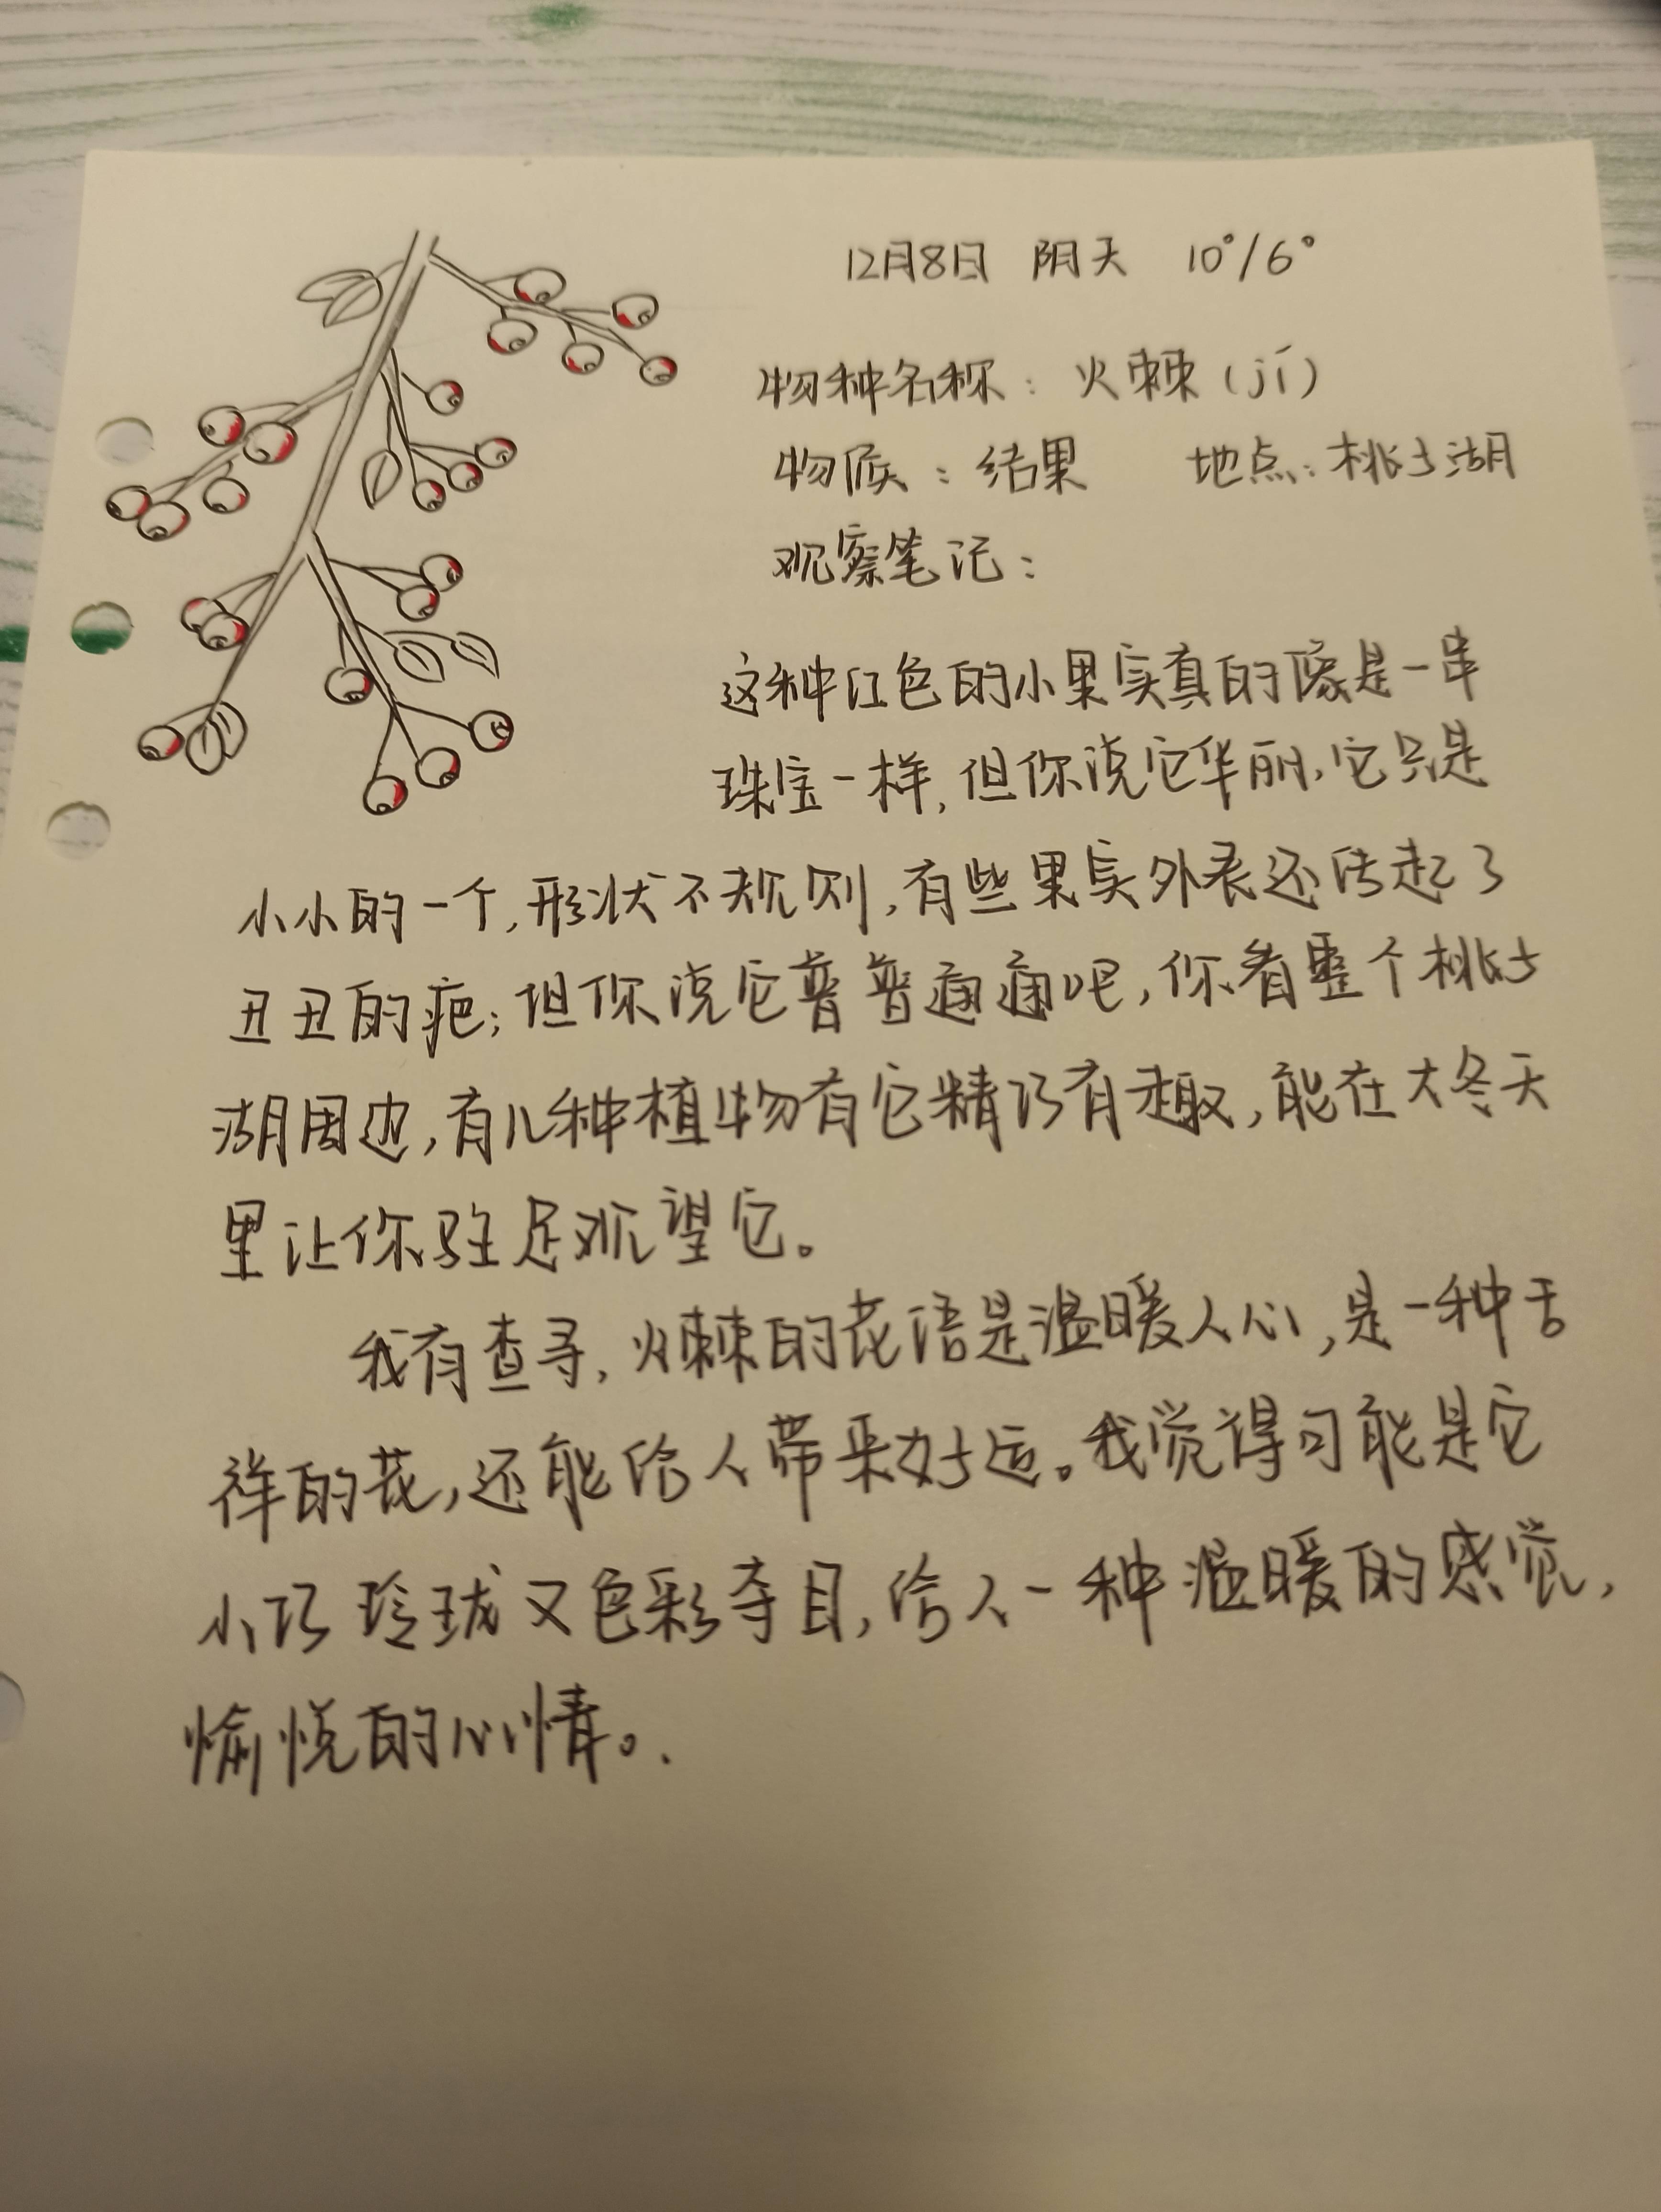 12月8日 阴天 10°/6°
物种名称：火棘（jí）
物质：结果 地点：桃子湖
观察笔记：
这种红色的小果实真的像是一串
珠宝一样，但你说它华丽，它只是
小小的一个，形状不规则，有些果实外表还结起了
丑丑的疤；但你说它普普通通吧，你看整个桃子
湖周边，有几种植物有它精巧有趣，能在大冬天
里让你驻足观望它。
我有查寻，火棘的花语是温暖人心，是一种吉
祥的花，还能给人带来好运。我觉得可能是它
小巧玲珑又色彩夺目，给人一种温暖的感觉，
愉悦的心情。